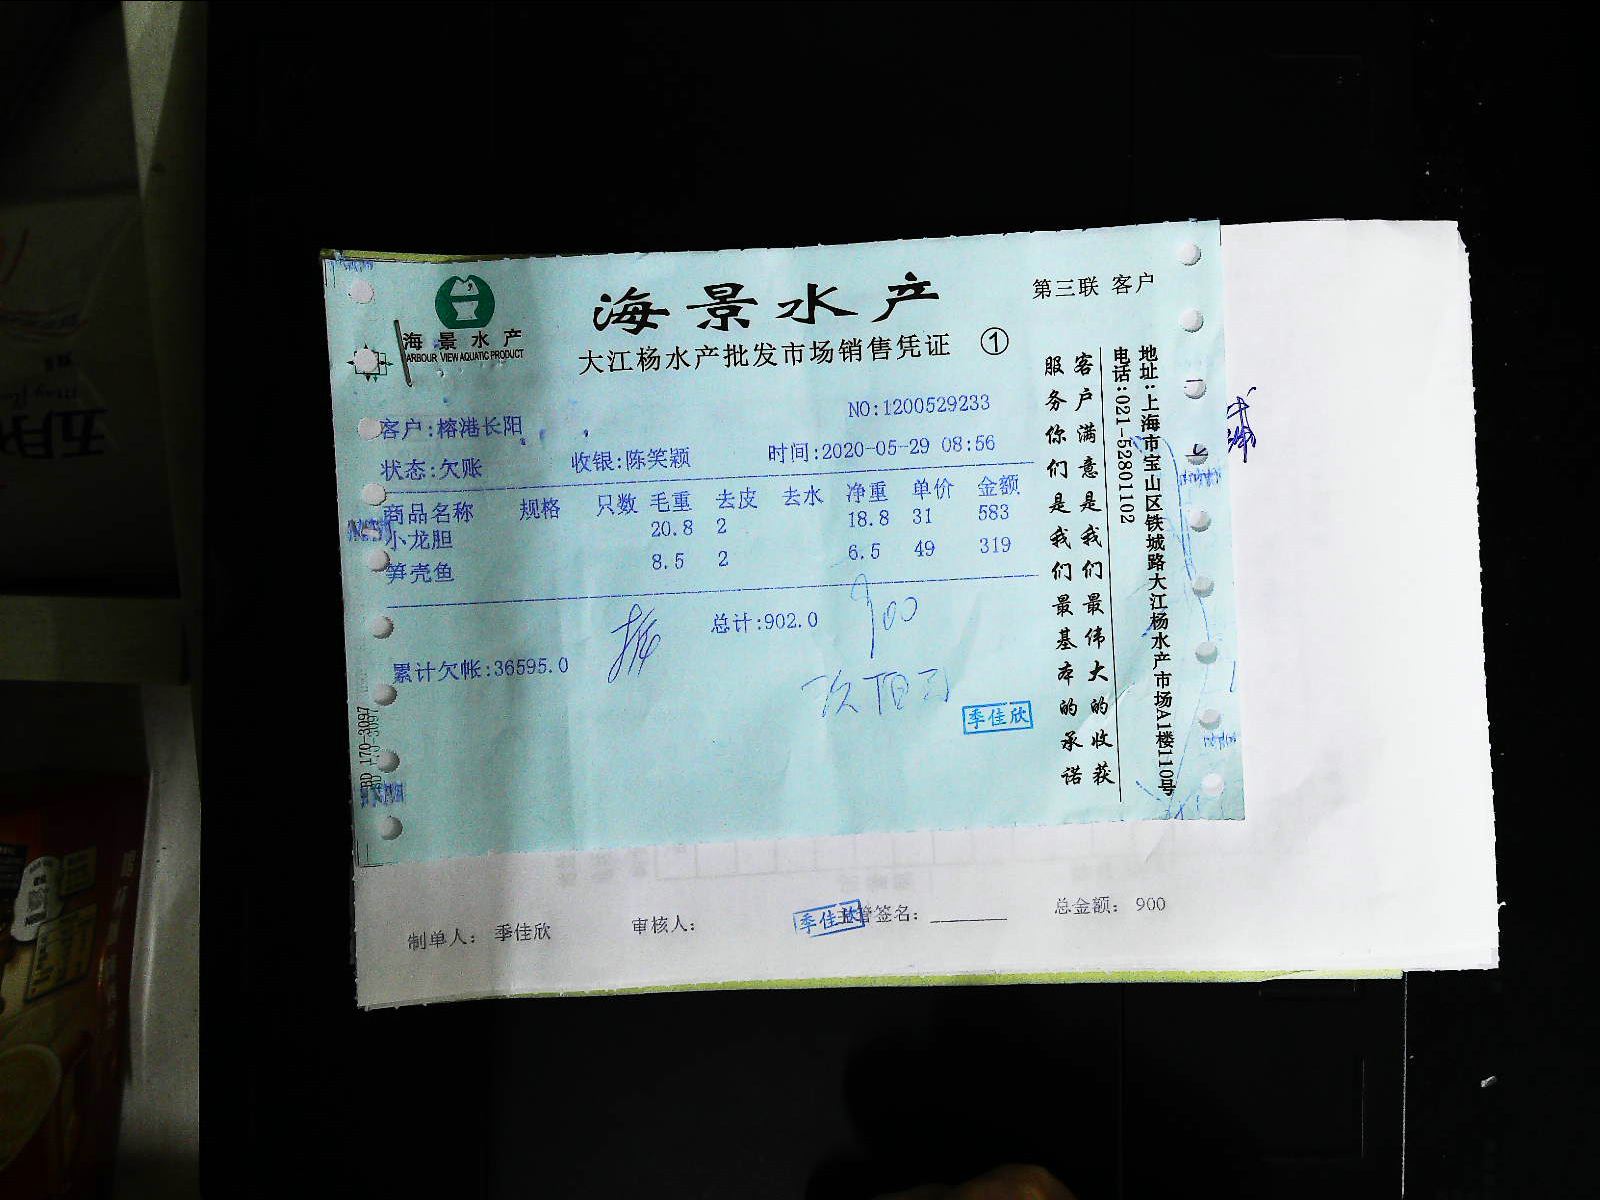 海景水产
HARBOUR VIEW AQUATIC PRODUCT
海景水产
大江杨水产批发市场销售凭证 ①
第三联 客户
NO:1200529233
客户:榕港长阳
状态:欠账 收银:陈笑颖 时间:2020-05-29 08:56
商品名称 规格 只数 毛重 去皮 去水 净重 单价 金额
小龙胆 20.8 2 18.8 31 583
笋壳鱼 8.5 2 6.5 49 319
总计:902.0
900
累计欠帐:36595.0
季佳欣
客户满意是我们最伟大的收获
服务你们是我们最基本的承诺
地址:上海市宝山区铁城路大江杨水产市场A1楼110号
电话:021-52801102
170-3097
制单人: 季佳欣 审核人: 季佳欣 主管签名: 总金额: 900